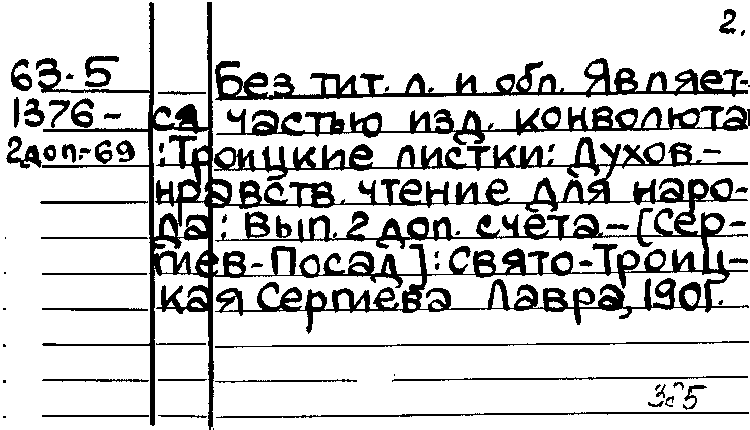 2.
63-5 Без тит. л. и обл. Являет-
1376- ся частью изд. конволюта
2доп.-69 :Троицкие листки: Духов.-
нравств. чтение для наро-
да: Вып. 2 доп. счёта-[Сер-
гиев-Посад]: Свято-Троиц-
кая Сергиева Лавра, 1901.